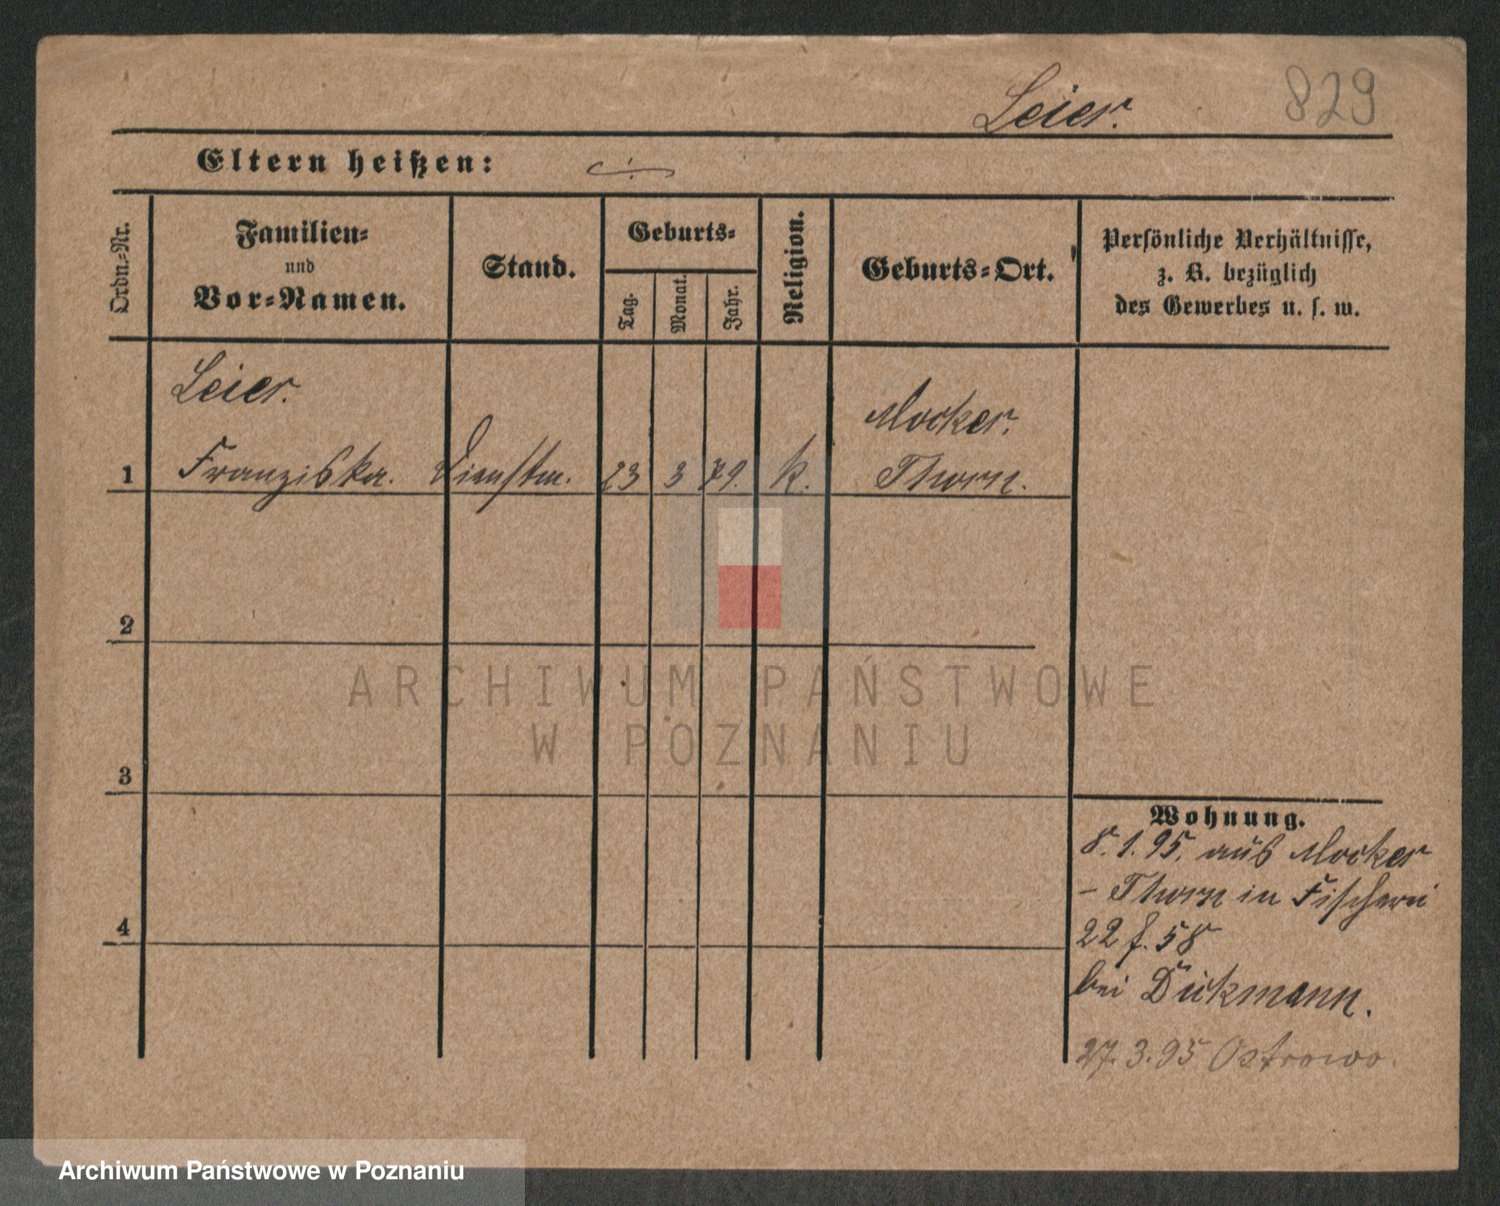 829
Leier.
Eltern heißen:
Ordn.-Nr.
Familien-
und
Vor-Namen.
Stand.
Geburts-
Tag.
Monat.
Jahr.
Religion.
Geburts-Ort.
Persönliche Verhältnisse,
z. B. bezüglich
des Gewerbes u. s. w.
Leier.
Mocker.
1 Franziska. Dienstm. 23 3 79. k. Thorn.
2
3
4
ARCHIWUM PAŃSTWOWE
W POZNANIU
Wohnung.
8.1.95. aus Mocker
- Thorn in Fischerei
22 f. 58
bei Dickmann.
27.3.95 Ostrowo.
Archiwum Państwowe w Poznaniu